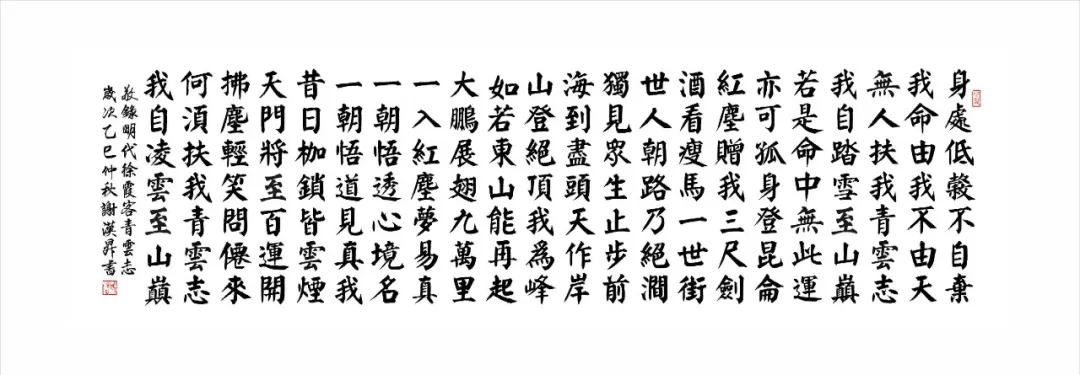 身處低穀不自棄
我命由我不由天
無人扶我青雲志
我自踏雪至山巔
若是命中無此運
亦可孤身登昆侖
紅塵贈我三尺劍
酒看瘦馬一世街
世人朝路乃絕澗
獨見眾生止步前
海到盡頭天作岸
山登絕頂我為峰
如若東山能再起
大鵬展翅九萬里
一入紅塵夢易真
一朝悟透心境名
一朝悟道見真我
昔日枷鎖皆雲煙
天門將至百運開
拂塵輕笑問僊來
何須扶我青雲志
我自凌雲至山巔
敬錄明代徐霞客青雲志
歲次乙巳仲秋謝漢昇書